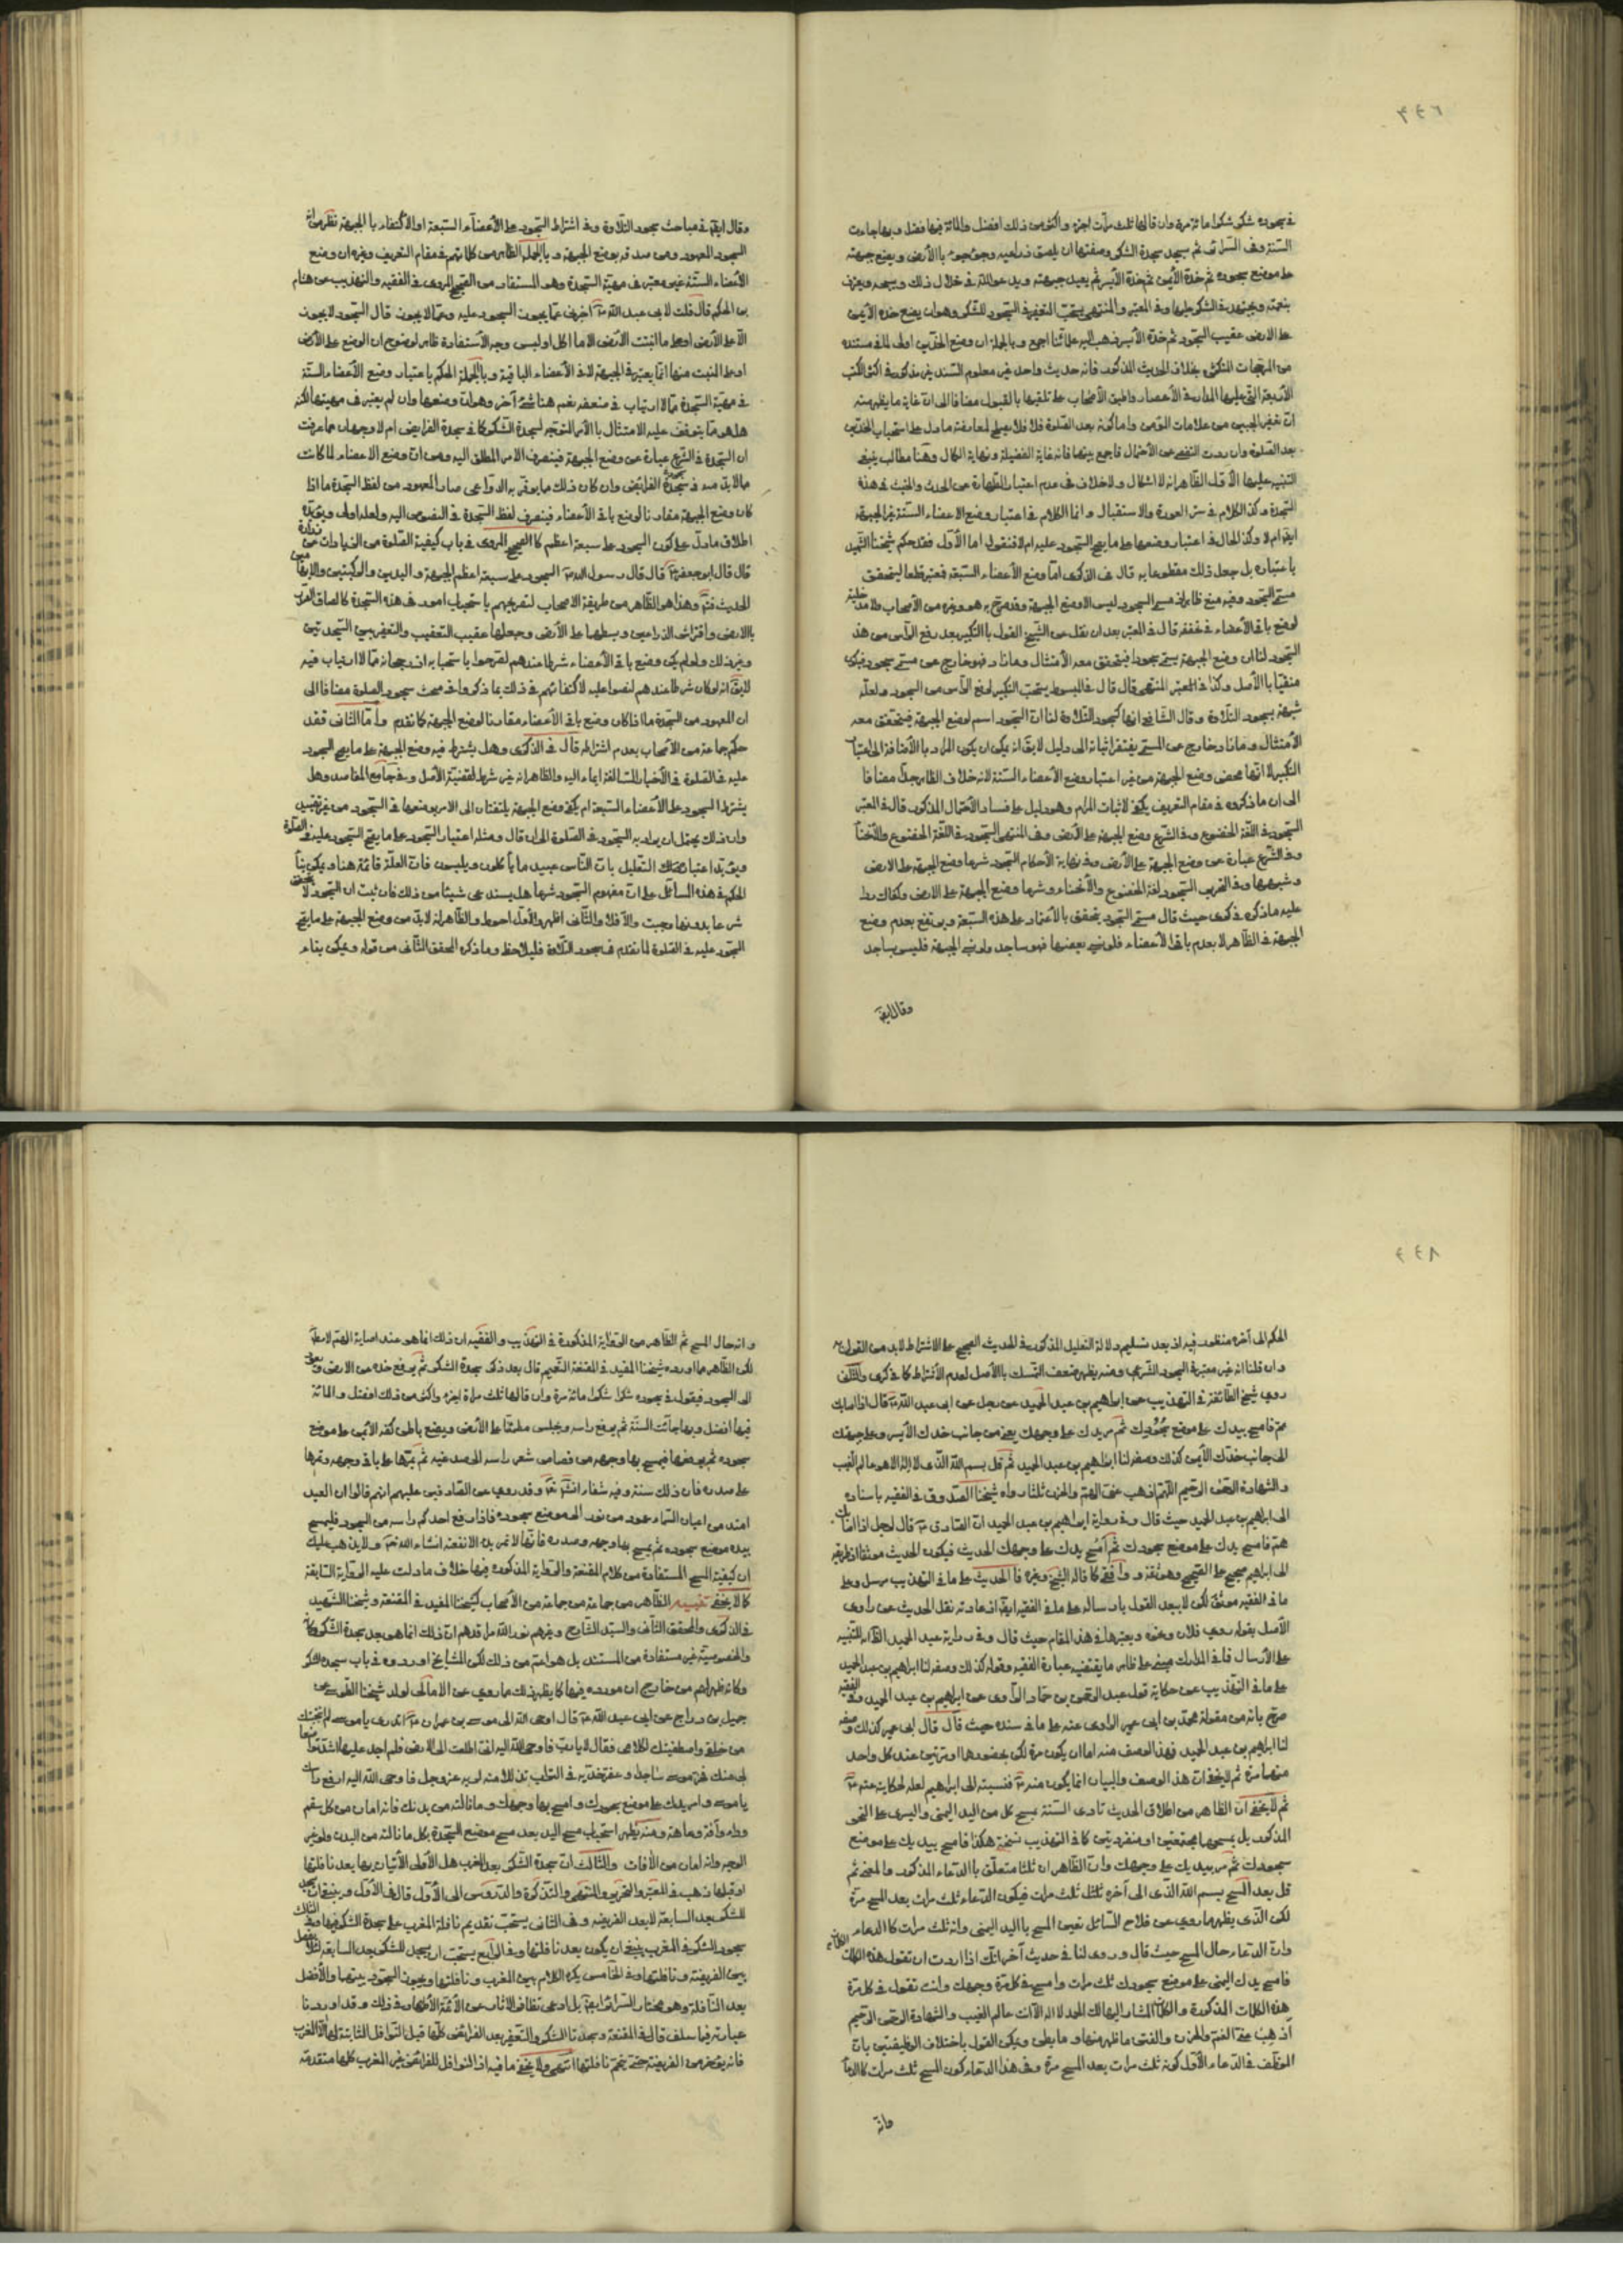 في سجوده شكرا شكرا مائة مرة وان قالها ثلث مرات اجزء واكثر من ذلك افضل والمائة فيها فضل وبها جاءت
السنة وفي السرائر ثم يسجد سجدة الشكر وصفتها ان يلصق ذراعيه وجؤجؤه بالأرض ويضع جبهته
على موضع سجوده ثم خده الأيمن ثم خده الأيسر ثم يعيد جبهته ويدعو الله في خلال ذلك ويسبحه ويعترف
بنعمته ويجتهد في الشكر عليها وفي المعتبر والمنتهى يستحب التعفير في السجود للشكر وهو ان يضع خده الأيمن
على الارض عقيب السجود ثم خده الأيسر ذهب اليه علمائنا اجمع وبالجملة ان وضع الخدين اولى لما في مستنده
من المرجحات التكثر بخلاف الحديث المذكور فانه حديث واحد غير معلوم السند غير مذكور في اكثر الكتب
الأربعة التي عليها المدار في الأعصار واطبق الأصحاب على تلقيها بالقبول مضافا الى ان غاية ما يظهر منه
ان تعفير الجبين من علامات المؤمن واما كونه بعد الصلوة فلا فلا يصلح لمعارضة ما دل على استحباب الخدين
بعد الصلوة وان ردت التفصي عن الأحتمال فاجمع بينها فانه غاية الفضيلة ونهاية الكمال وهنا مطالب ينبغي
التنبيه عليها الأول الظاهر انه لا اشكال ولا خلاف في عدم اعتبار الطهارة عن الحدث والخبث في هذه
السجدة وكذا الكلام في ستر العورة والاستقبال وانما الكلام في اعتبار وضع الاعضاء الستة غير الجبهة
ايضا ام لا وكذا الحال في اعتبار وضعها على ما يصح السجود عليه ام لا فنقول اما الأول فقد حكم شيخنا الشهيد
باعتباره بل جعل ذلك مقطوعا به قال في الذكرى اما وضع الأعضاء السبعة فمعتبر قطعا ليتحقق
مسمى السجود وفيه منع ظاهر اذ مسمى السجود ليس الا وضع الجبهة وقد صرح به هو وغيره من الأصحاب ولا مدخلية
لوضع باقي الأعضاء في تحققه قال في المعتبر بعد ان نقل عن الشيخ القول بالتكبير بعد رفع الرأس من هذا
السجود لنا ان وضع الجبهة يسمى سجودا فيتحقق معه الأمتثال وما زاد فهو خارج عن مسمى سجود فيكون
منفيا بالأصل وكذا في المعتبر المنتهى قال قال في المبسوط يستحب التكبير لرفع الرأس من السجود ولعله
شبهه بسجود التلاوة وقال الشافعي انها كسجود التلاوة لنا ان السجود اسم لوضع الجبهة فيتحقق معه
الأمتثال وما زاد خارج عن المسمى يفتقر اثباته الى دليل لا يق انه يمكن ان يكون المراد بالأضافة الى اعتبار
التكبير لا انها محض وضع الجبهة من غير اعتبار وضع الأعضاء الستة لانه خلاف الظاهر جدا مضافا
الى ان ما ذكروه في مقام التعريف يكفي لاثبات المرام وهو دليل على فساد الأحتمال المذكور قال في المعتبر
السجود في اللغة الخضوع وفي الشرع وضع الجبهة على الأرض وفي المنتهى السجود في اللغة الخضوع والأنحناء
وفي الشرع عبارة عن وضع الجبهة على الأرض وفي نهاية الأحكام السجود شرعا وضع الجبهة على الارض
وشبهها وفي التحرير السجود لغة الخضوع والأنحناء وشرعا وضع الجبهة على الارض
عليه ما ذكره في كرى حيث قال مسمى السجود يتحقق بالأعتماد على هذه السبعة ويرتفع بعدم وضع
الجبهة في الظاهر لا بعدم باقي الأعضاء فلو نسى بعضها فهو ساجد ولو نسى الجبهة فليس بساجد
وقال ايضا
وقال ايضا في مباحث سجود التلاوة وفي اشتراط السجود على الأعضاء السبعة او الأكتفاء بالجبهة نظر من انه
السجود المعهود ومن صدقه بوضع الجبهة وبالجملة الظاهر من كلماتهم في مقام التعريف وغيره ان وضع
الأعضاء الستة غير معتبر في مهية السجدة وهو المستفاد من الصحيح المروي في الفقيه والتهذيب عن هشام
بن الحكم قال قلت لابي عبد الله ع اخبرني عما يجوز السجود عليه وعما لا يجوز قال السجود لا يجوز
الا على الأرض او على ما انبتت الأرض الا ما اكل او لبس وجه الأستفادة ظاهر لوضوح ان الوضع على الأرض
او على النبت منها انما يعتبر في الجبهة لا في الأعضاء الباقية وبالجملة الحكم باعتبار وضع الأعضاء الستة
في مهية السجدة مما لا ارتياب في ضعفه نعم هنا شئ آخر وهو ان وضعها وان لم يعتبر في مهيتها لكنه
هل هو مما يتوقف عليه الامتثال بالأمر المتوجه لسجدة الشكر كما في سجدة الفرايض ام لا وجهان مما عرفت
ان السجدة في الشرع عبارة عن وضع الجبهة فينصرف الامر المطلق اليه ومن ان وضع الاعضاء لما كانت
مما لا بد منه في سجدة الفرائض وان كان ذلك مما يوفر به الدواعي صار المعهود من لفظ السجدة ما اذا
كان وضع الجبهة مقارنا لوضع باقي الأعضاء فينصرف لفظ السجدة في النصوص اليه ولعله اولى ويؤيده
اطلاق ما دل على كون السجود على سبعة اعظم كالصحيح المروي في باب كيفية الصلوة من الزيادات عن زرارة
قال قال ابو جعفر ع قال قال رسول الله ص السجود على سبعة اعظم الجبهة واليدين والركبتين والابهامين
الحديث وهذا هو الظاهر من طريقة الاصحاب لتصريحهم باستحباب امور في هذه السجدة كالصاق الصدر
بالارض وافتراش الذراعين وبسطها على الأرض وجعلها عقيب التعقيب والتعفير بين السجدتين
وغير ذلك ولو لم يكن وضع باقي الأعضاء شرطا عندهم لصرحوا باستحبابه اذ رجحانه مما لا ارتياب فيه
لا يق انه لو كان شرطا عندهم لنصوا عليه لاكتفائهم في ذلك بما ذكروا في مبحث سجود الصلوة مضافا الى
ان المعهود من السجدة ما اذا كان وضع باقي الأعضاء مقارنا لوضع الجبهة كما تقدم واما الثاني فقد
حكم جماعة من الأصحاب بعدم اشتراطه قال في الذكرى وهل يشترط فيه وضع الجبهة على ما يصح السجود
عليه في الصلوة في الأخبار السالفة ايماء اليه والظاهر انه غير شرط لقضية الأصل وفي جامع المقاصد وهل
يشترط السجود على الأعضاء السبعة ام يكفي وضع الجبهة يلتفتان الى الامر بوضعها في السجود من غير تقييد
وان ذلك يحتمل ان يراد به السجود في الصلوة الى ان قال ومثله اعتبار السجود على ما يصح السجود عليه في الصلوة
ويؤيد اعتبار ذلك التعليل بان الناس عبيد ما يأكلون ويلبسون فان العلة قائمة هنا ويمكن بناء
الحكم في هذه المسائل على ان مفهوم السجود شرعا هل يستدعي شيئا من ذلك فان ثبت ان السجود لا يتحقق
شرعا بدونها وجبت والا فلا والثاني اظهر والأول احوط والظاهر انه لا بد من وضع الجبهة على ما يصح
السجود عليه في الصلوة لما تقدم في سجود التلاوة فليلاحظ وما ذكره المحقق الثاني من قوله ويمكن بناء
الحكم الى آخره منظور فيه اذ بعد تسليم دلالة التعليل المذكور في الحديث الصحيح على الاشتراط لا بد من القول به
وان قلنا انه غير معتبر في السجود الشرعي ومنه يظهر ضعف التمسك بالأصل لعدم الأشتراط كما في كرى والثاني
روى شيخ الطائفة في التهذيب عن ابراهيم بن عبد الحميد عن رجل عن ابي عبد الله ع قال اذا اصابك
هم فامسح يدك على موضع سجودك ثم مر يدك على وجهك يعني من جانب خدك الأيسر وعلى جبهتك
الى جانب خدك الأيمن كذلك وصفه لنا ابراهيم بن عبد الحميد ثم قل بسم الله الذي لا اله الا هو عالم الغيب
والشهادة الرحمن الرحيم اللهم اذهب عني الهم والحزن ثلثا رواه شيخنا الصدوق في الفقيه باسناده
الى ابراهيم بن عبد الحميد حيث قال وفي رواية ابراهيم بن عبد الحميد ان الصادق ع قال لرجل اذا اصابك
هم فامسح يدك على موضع سجودك ثم امسح يدك على وجهك الحديث فيكون الحديث موثقا اذ طريقه
الى ابراهيم صحيح على الصحيح وهو ثقة واقفي كما قاله الشيخ وغيره فالحديث على ما في التهذيب مرسل وعلى
ما في الفقيه موثق لكن لا يبعد القول بارساله على ما في الفقيه ايضا اذ عادته نقل الحديث عن راوي
الأصل بقوله روى فلان ونحوه وبعتبرها في هذا المقام حيث قال وفي رواية عبد الحميد للتنبيه
على الأرسال فما في المدارك مبني على ظاهر ما يقتضيه عبارة الفقيه وقوله كذلك وصفه لنا ابراهيم بن عبد الحميد
على ما في التهذيب عن حكاية قول عبد الرحمن بن حماد الراوي عن ابراهيم بن عبد الحميد وفي الفقيه
صرح بانه من مقولة محمد بن ابي عمير الراوي عنه على ما في سنده حيث قال قال ابن ابي عمير كذلك وصفه
لنا ابراهيم بن عبد الحميد فهذا الوصف منه اما ان يكون مرة لكن بحضورهما او مرتين عند كل واحد
منهما مرة ثم لا يخفى ان هذا الوصف والبيان انما يكون منه ع فنسبته الى ابراهيم لعله لحكايته عنه ع
ثم لا يخفى ان الظاهر من اطلاق الحديث تادى السنة بمسح كل من اليد اليمنى واليسرى على النحو
المذكور بل بمسحها مجتمعتين او منفردتين كما في التهذيب نسخة هكذا فامسح بيديك على موضع
سجودك ثم مر بيديك على وجهك وان الظاهر ان ثلثا متعلق بالدعاء المذكور والمعنى ثم
قل بعد المسح بسم الله الذي الى آخره ثلث مرات فيكون الدعاء ثلث مرات بعد المسح مرة
لكن الذي يظهر مما روي عن فلاح السائل تعين المسح باليد اليمنى وانه ثلث مرات كالدعاء
وان الدعاء حال المسح حيث قال وروى لنا في حديث آخر انك اذا اردت ان تقول هذه الكلمات
فامسح يدك اليمنى على موضع سجودك ثلث مرات وامسح في كل مرة وجهك وانت تقول في كل مرة
هذه الكلمات المذكورة والكلمات المشار اليها لك الحمد لا اله الا انت عالم الغيب والشهادة الرحمن الرحيم
اذهب عني الغم والحزن والفتن ما ظهر منها وما بطن ويمكن القول باختلاف الوظيفتين بان
الموظف في الدعاء الأول كونه ثلث مرات بعد المسح مرة وفي هذا الدعاء كون المسح ثلث مرات كالدعاء
وانه
وانه حال المسح ثم الظاهر من الرواية المذكورة في التهذيب والفقيه ان ذلك انما هو عند اصابة الهم لا مطلقا
لكن الظاهر مما اورده شيخنا المفيد في المقنعة التعميم قال بعد ذكر سجدة الشكر ثم يرفع خده عن الارض ويعود
الى السجود فيقول في سجوده شكرا شكرا مائة مرة وان قالها ثلث مرات اجزء واكثر من ذلك افضل والمائة
فيها افضل وبها جائت السنة ثم يرفع راسه ويجلس مطمئنا على الأرض ويضع باطن كفه الأيمن على موضع
سجوده ثم يرفعها فيمسح بها وجهه من قصاص شعر راسه الى صدغيه ثم يمرها على باقي وجهه ويمرها
على صدره فان ذلك سنة وفيه شفاء انشاء الله تع وقد روي عن الصادقين عليهم انهم قالوا ان العبد
امتد من اعنان السماء عمود من نور الى موضع سجوده فاذا رفع احدكم راسه من السجود فليمسح
بيده موضع سجوده ثم يمسح بها وجهه وصدره فانها لا تمر بداء الا نفعته انشاء الله تع ولا يذهب عليك
ان كيفية المسح المستفادة من كلام المقنعة والرواية المذكورة فيها خلاف ما دلت عليه الرواية السابقة
كما لا يخفى تنبيه الظاهر من جماعة من الأصحاب كشيخنا المفيد في المقنعة وشيخنا الشهيد
في الذكرى والمحقق الثاني والسيد الشارح وغيرهم نور الله مراقدهم ان ذلك انما هو بعد سجدة الشكر
والخصوصية غير مستفادة من المستند بل هو اعم من ذلك لكن المشايخ اوردوه في باب سجدة الشكر
وكانه ظهر لهم من خارج ان مورده فيها كما يظهر ذلك مما روي عن الامالي لولد شيخنا الطوسي عن
جميل بن دراج عن ابي عبد الله ع قال اوحى الله الى موسى بن عمران ع اتدري يا موسى لم انتجبتك
من خلقي واصطفيتك لكلامي فقال لا يا رب فاوحى الله اليه اني اطلعت الى الارض فلم اجد عليها اشد تواضعا
لي منك فخر موسى ساجدا وعفر خديه في التراب تذللا منه لربه عز وجل فاوحى الله اليه ارفع راسك
يا موسى وامر يدك على موضع سجودك وامسح بها وجهك وما نالته من بدنك فانه امان من كل سقم
وداء وآفة وعاهة ومنه يظهر استحباب مسح اليد بعد مسح موضع السجدة بكل ما نالته من البدن ولو غير
الوجه وانه امان من الأفات والثالث ان سجدة الشكر بعد المغرب هل الأولى الأتيان بها بعد نافلتها
او قبلها ذهب في المعتبر والتحرير والمنتهى والتذكرة والدروس الى الأول قال في الأول وينبغي ان يكون
الشكر بعد السابعة لا بعد الفريضة وفي الثاني يستحب تقديم نافلة المغرب على سجدة الشكر فيها وفي الثالث
سجود الشكر في المغرب ينبغي ان يكون بعد نافلتها وفي الرابع يستحب ان يسجد للشكر بعد السابعة لئلا يفصل
بين الفريضة ونافلتها وفي الخامس يكره الكلام بين المغرب ونافلتها ويجوز السجود بينهما والأفضل
بعد النافلة وهو مختار السرائر ايضا بل ادعى تظافر الاثار عن الأئمة الأطهار في ذلك وقد اوردنا
عبارته فيما سلف قال في المقنعة وسجدتا الشكر والتعفير بعد الفرائض كلها قبل النوافل الثابتة لها الا المغرب
فانه يؤخر من الفريضة حتى يتم نافلتها انتهى ولا يخفى ما فيه اذ النوافل للفرائض غير المغرب كلها متقدمة